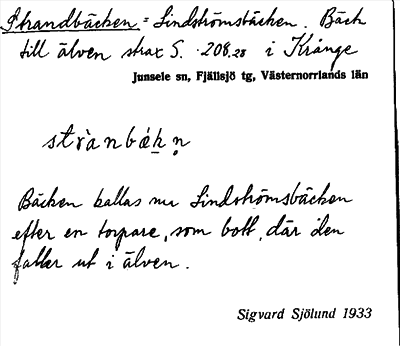 Strandbäcken = Lindströmsbäcken. Bäck
till älven strax S. ·208,28 i Krånge
Junsele sn, Fjällsjö tg, Västernorrlands län
strànbák̠n̥
Bäcken kallas nu Lindströmsbäcken
efter en torpare, som bott, där den
faller ut i älven.
Sigvard Sjölund 1933